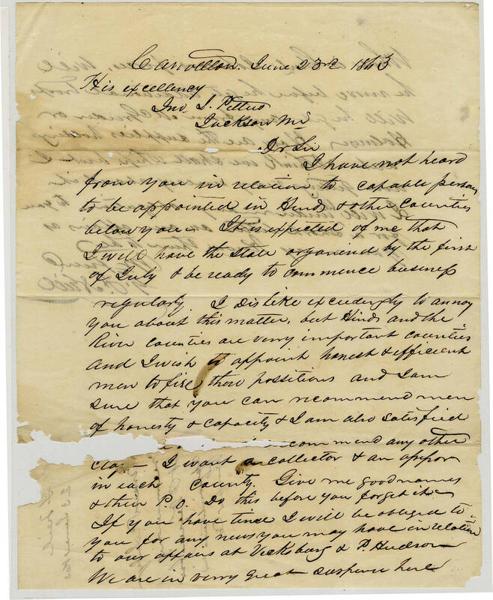 Carrollton. June 23rd 1863
His excellency
Jno J. Pettus
Jackson Mi
Dr Sir
I have not heard
from you in relation to capable persons
to be appointed in Hinds & other Counties
below you It is expected of me that
I will have the State organised by the first
of July & be ready to commence business
regularly I dislike exceedingly to annoy
you about this matter, but Hinds and the
River counties are very important counties
and I wish to appoint honest & efficient
men to fill these possitions and I am
sure that you can recommend men
of honesty & capacity & I am also satisfied
commend any other
class — I want a collector & an appsr
in each County. Give me good names
& their P.O. Do this before you forget it
If you have time I will be obliged to
you for any news you may have in relation
to our affairs at Vicksburg & P. Hudson
We are in very great suspense here